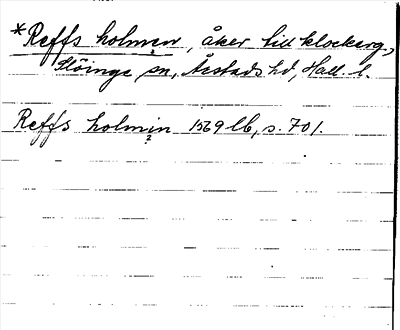 *Reffs holmen, åker till klockarg.,
Slöinge sn, Årstads hd, Hall. l.
Reffs holmin 1569 lb, s. 701.
?